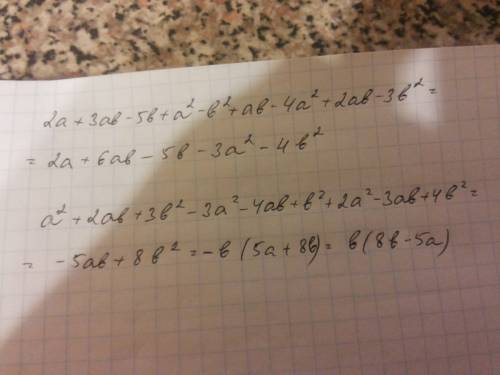 2a + 3ab - 5b + a² - b² + ab - 4a² + 2ab - 3b² =
= 2a + 6ab - 5b - 3a² - 4b²
a² + 2ab + 3b² - 3a² - 4ab + b² + 2a² - 3ab + 4b² =
= - 5ab + 8b² = - b (5a + 8b) = b (8b - 5a)